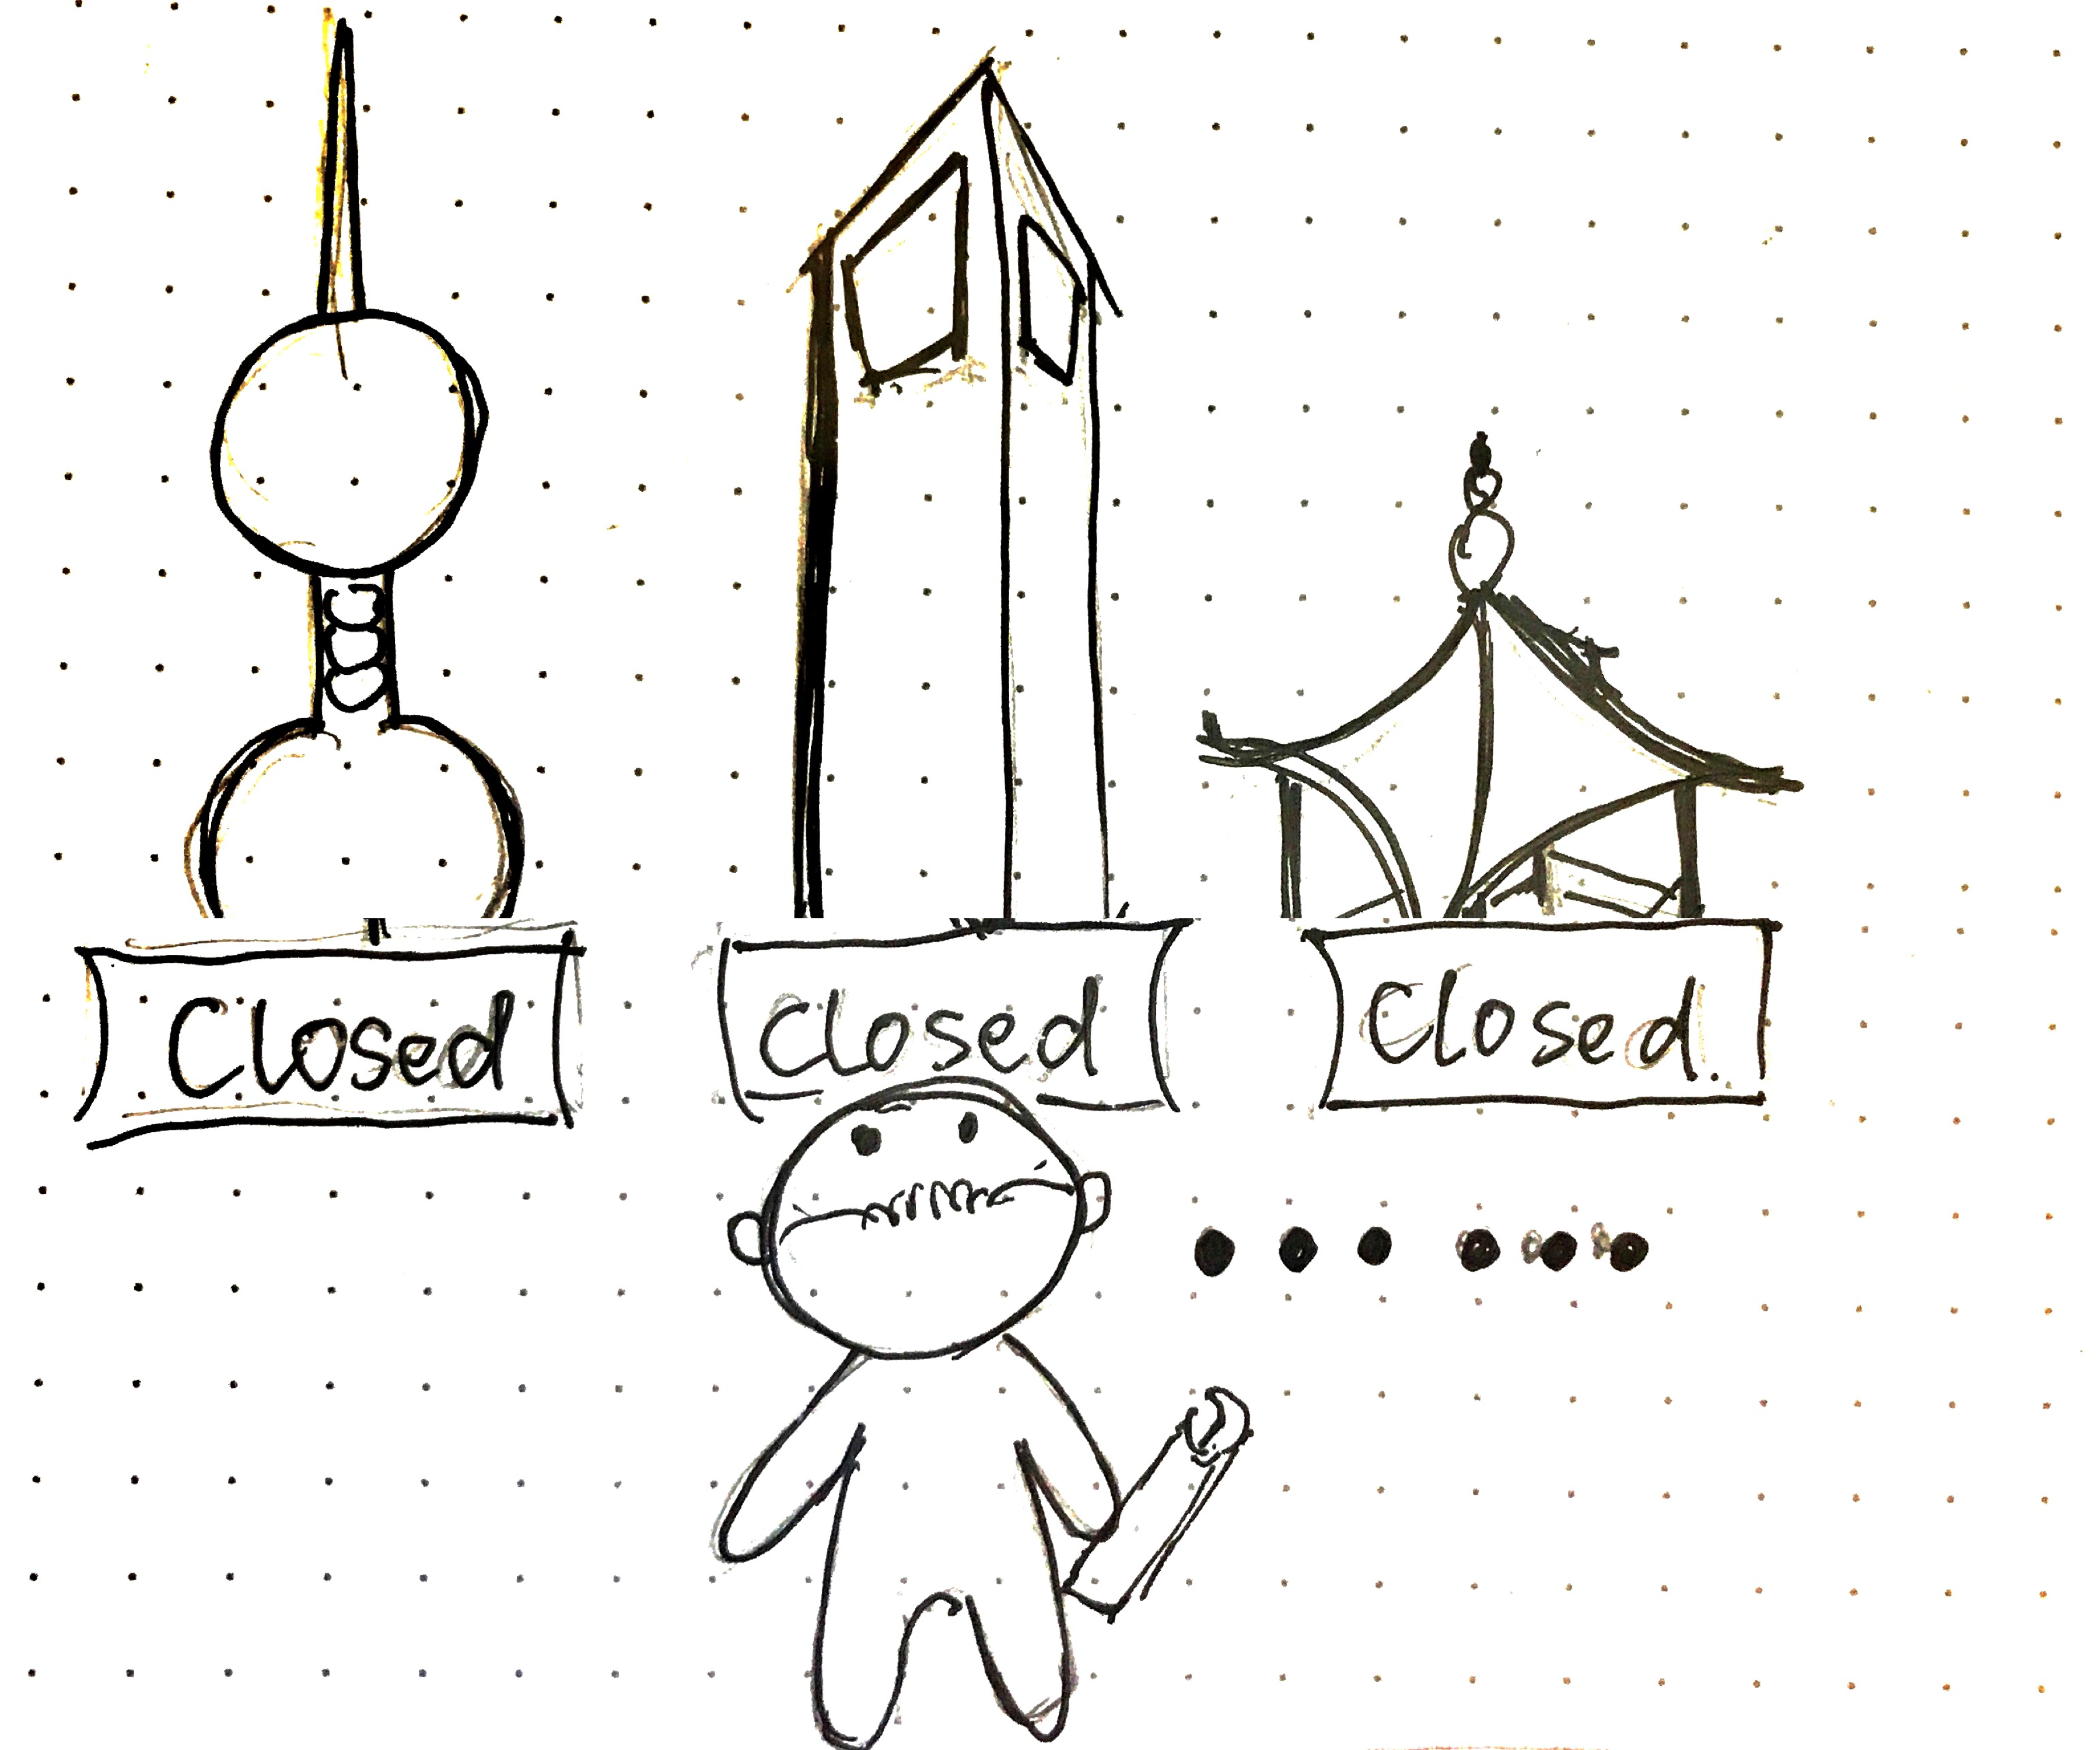 Closed
Closed
Closed.